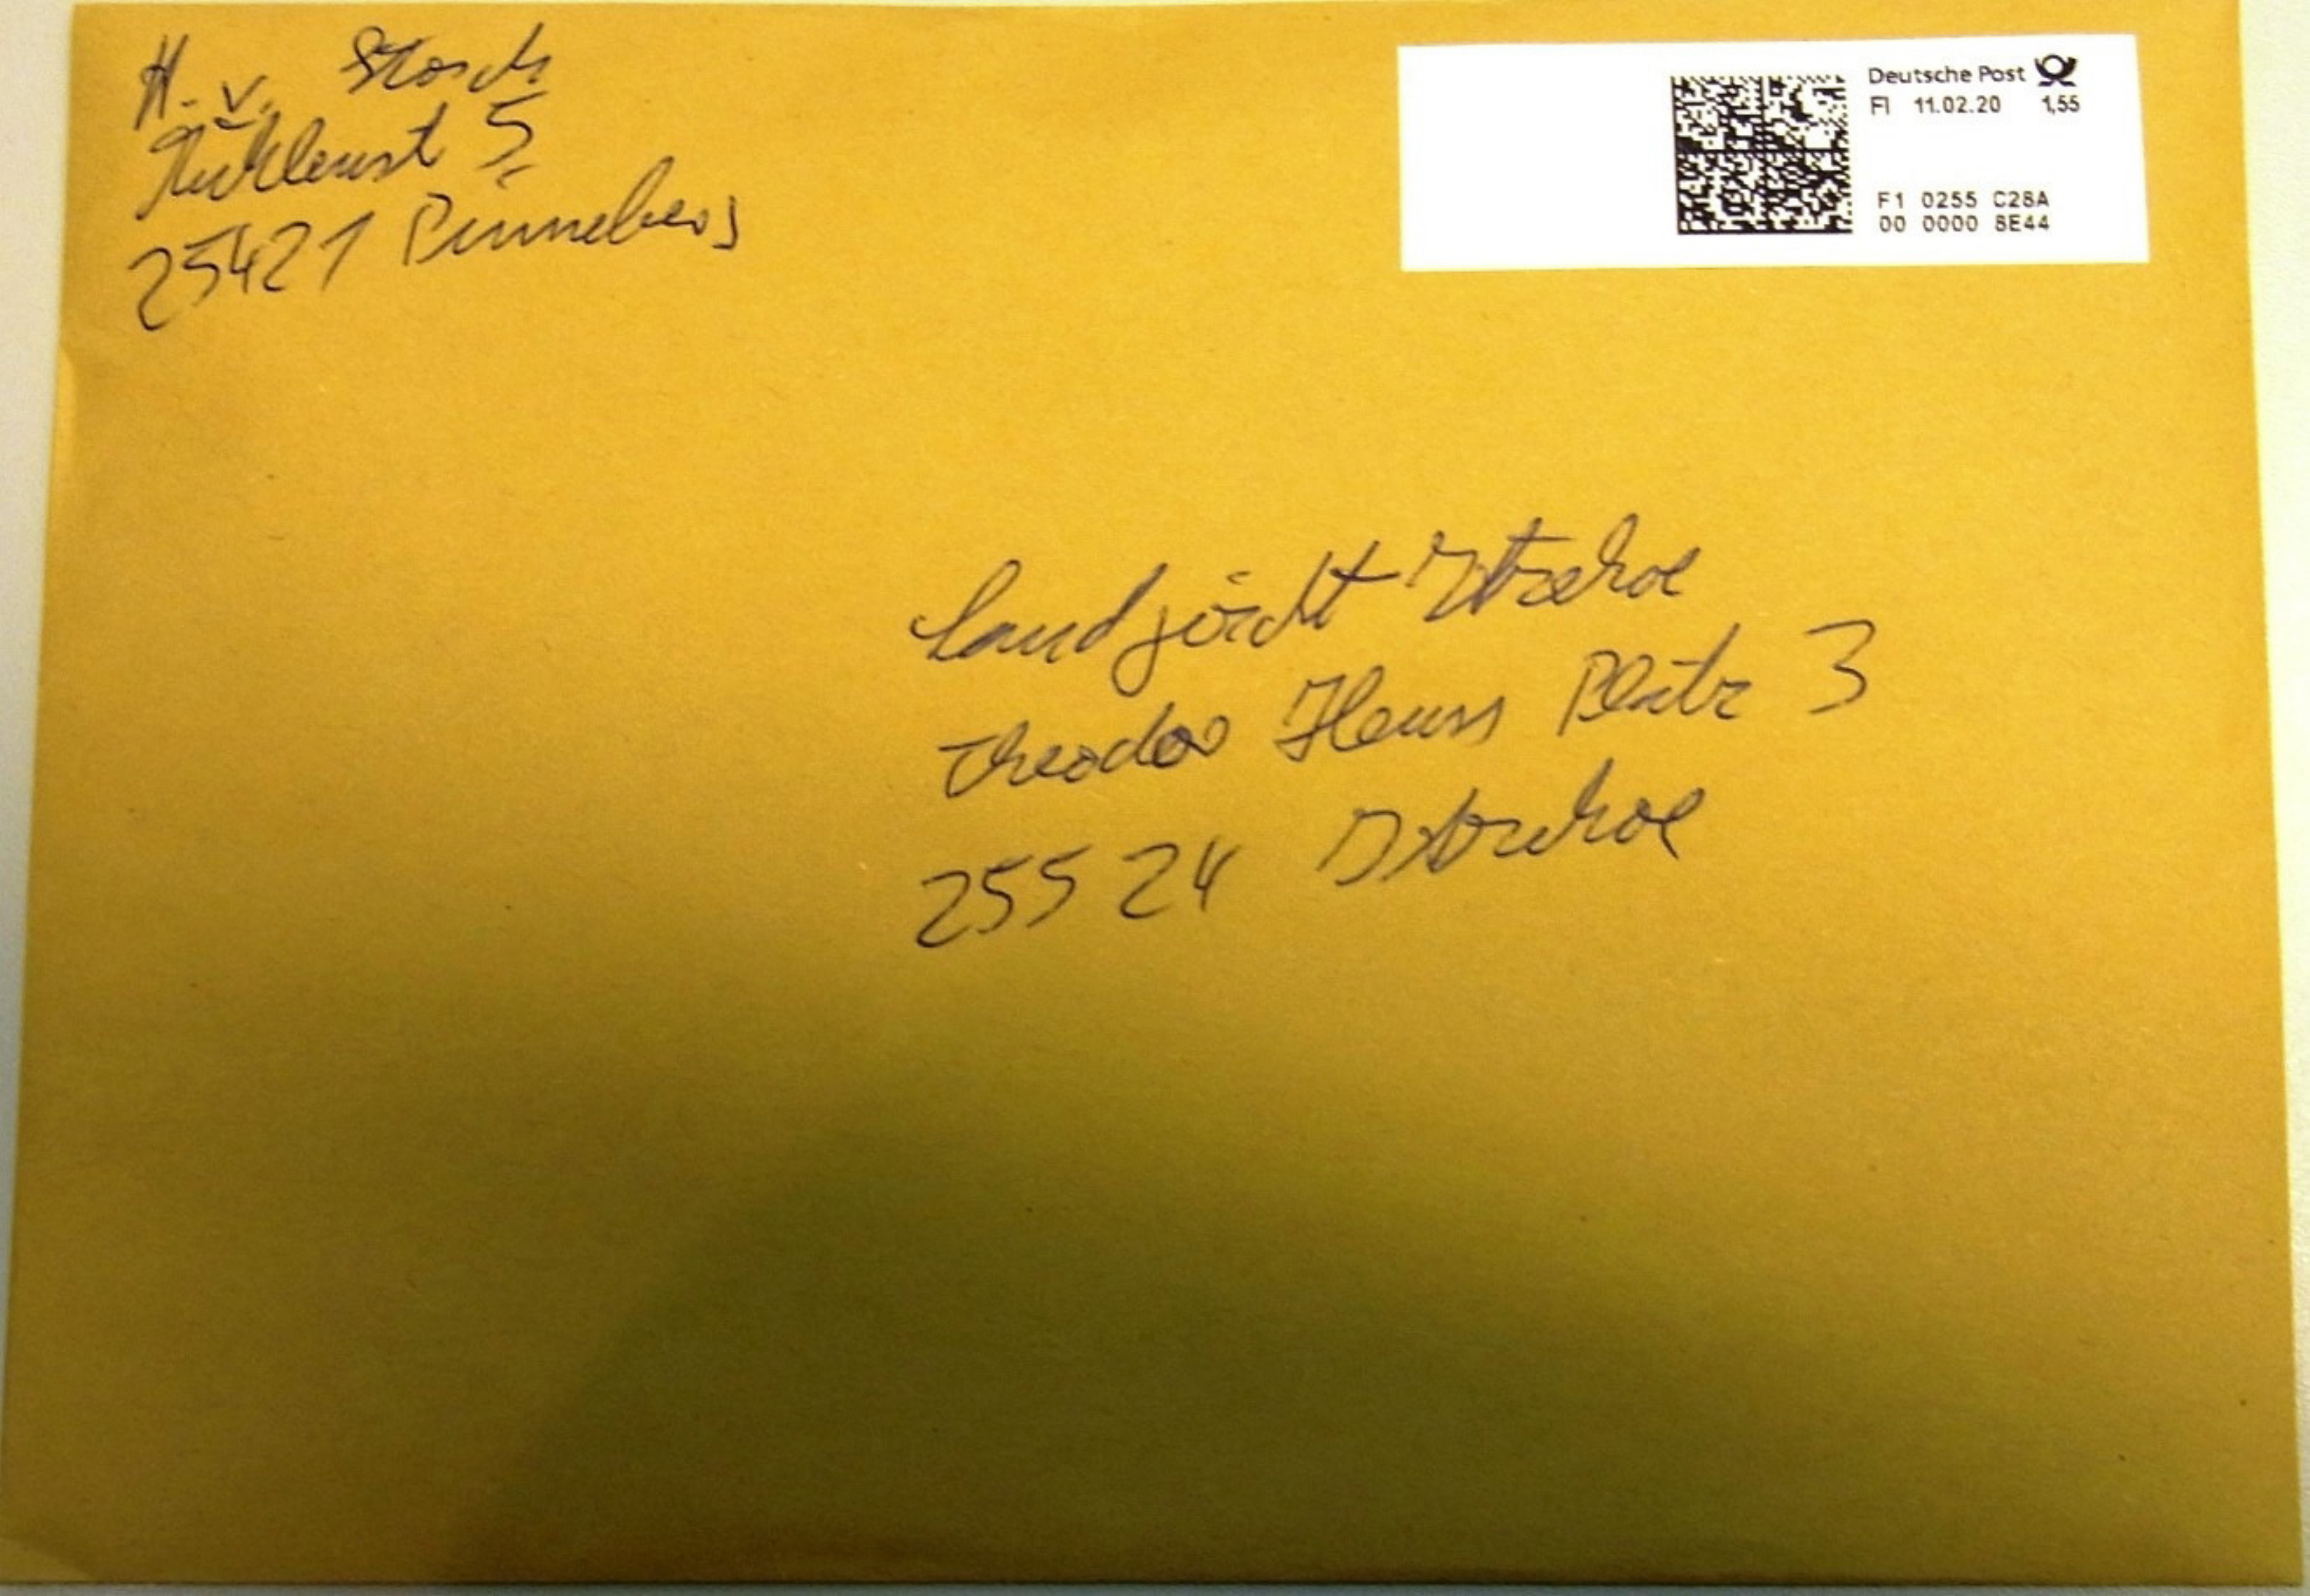 H. v. Storch
5
25421 Pinneberg
Deutsche Post
FI 11.02.20 1,55
F1 0255 C28A
00 0000 8E44
Landgericht Itzehoe
Theodor Heuss Platz 3
25524 Itzehoe